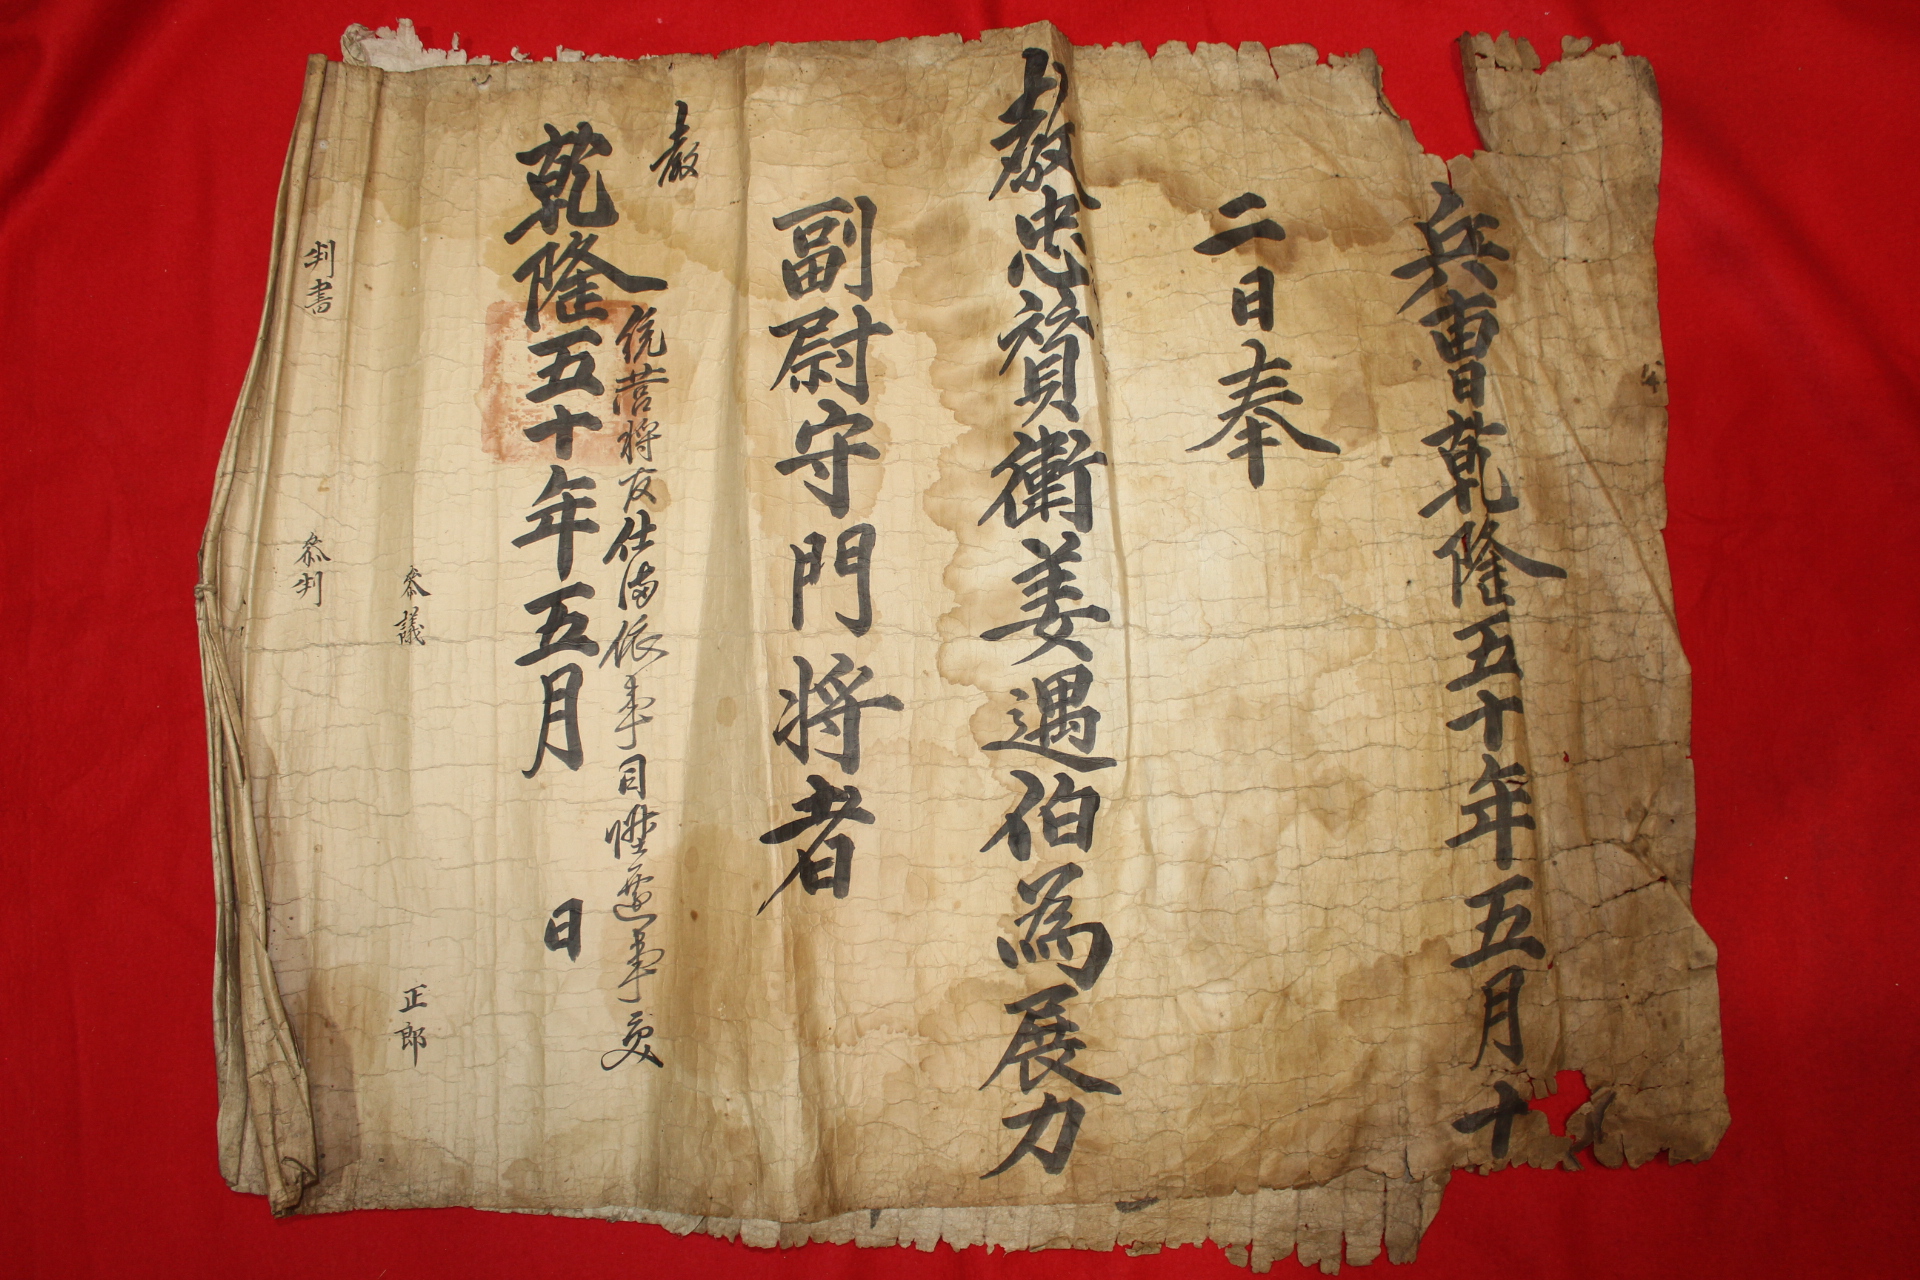 兵曺乾隆五十年五月十
二日奉
敎忠贊衛姜遇伯為展力
副尉守門將者
敎
統營將友仕滿依事目陞遷事受
乾隆五十年五月 日
參議 正郎
判書 參判